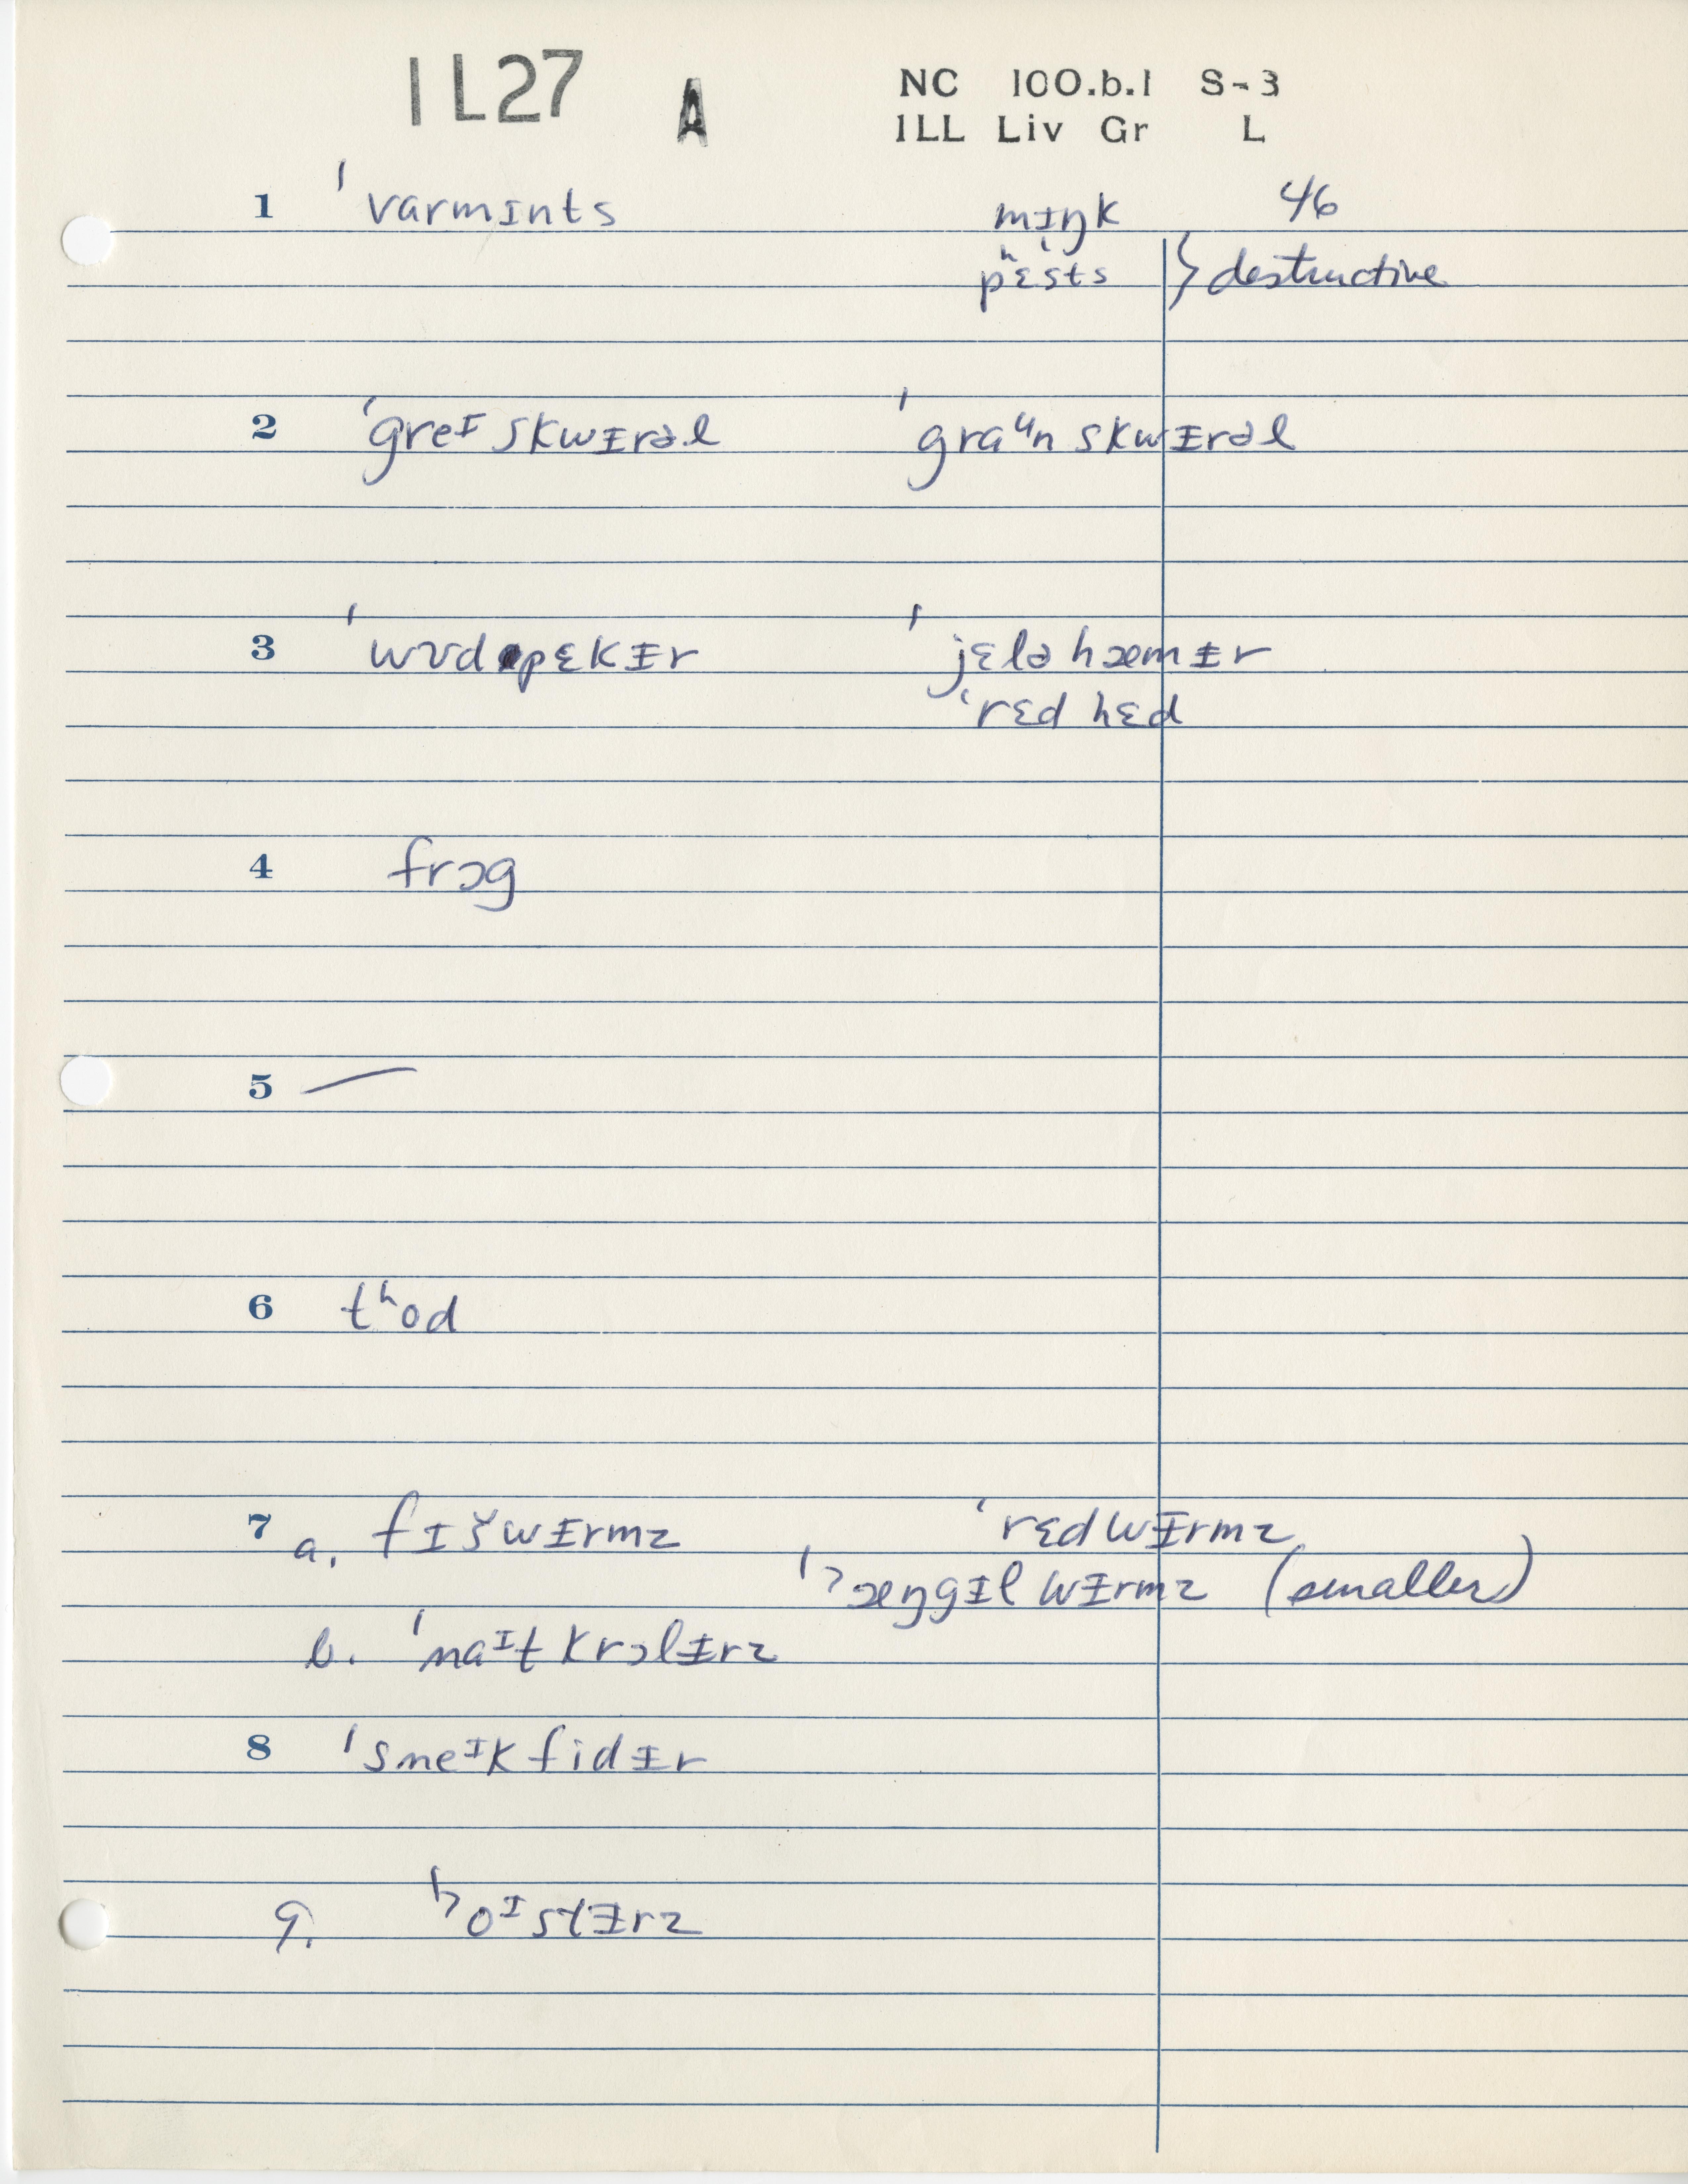 IL27 A NC 100.b.1 S-3
ILL Liv Gr L
1 ˈvarmɪnts mɪŋk 46
pʰɛsts } destructive
2 ˈgreᶦ skwɪrəl ˈgraᵘn skwɪrəl
3 ˈwʊdpɛkᵻr ˈjɛlə hæmᵻr
ˈrɛd hɛd
4 frɔg
5 —
6 tʰod
7 a. fɪšwᵻrmz ˈrɛdwᵻrmz
ˈʔæŋgɪl wᵻrmz (smaller)
b. ˈnaᶦt krɔlᵻrz
8 ˈsneᶦk fidᵻr
9. ˈʔoᶦstᵻrz